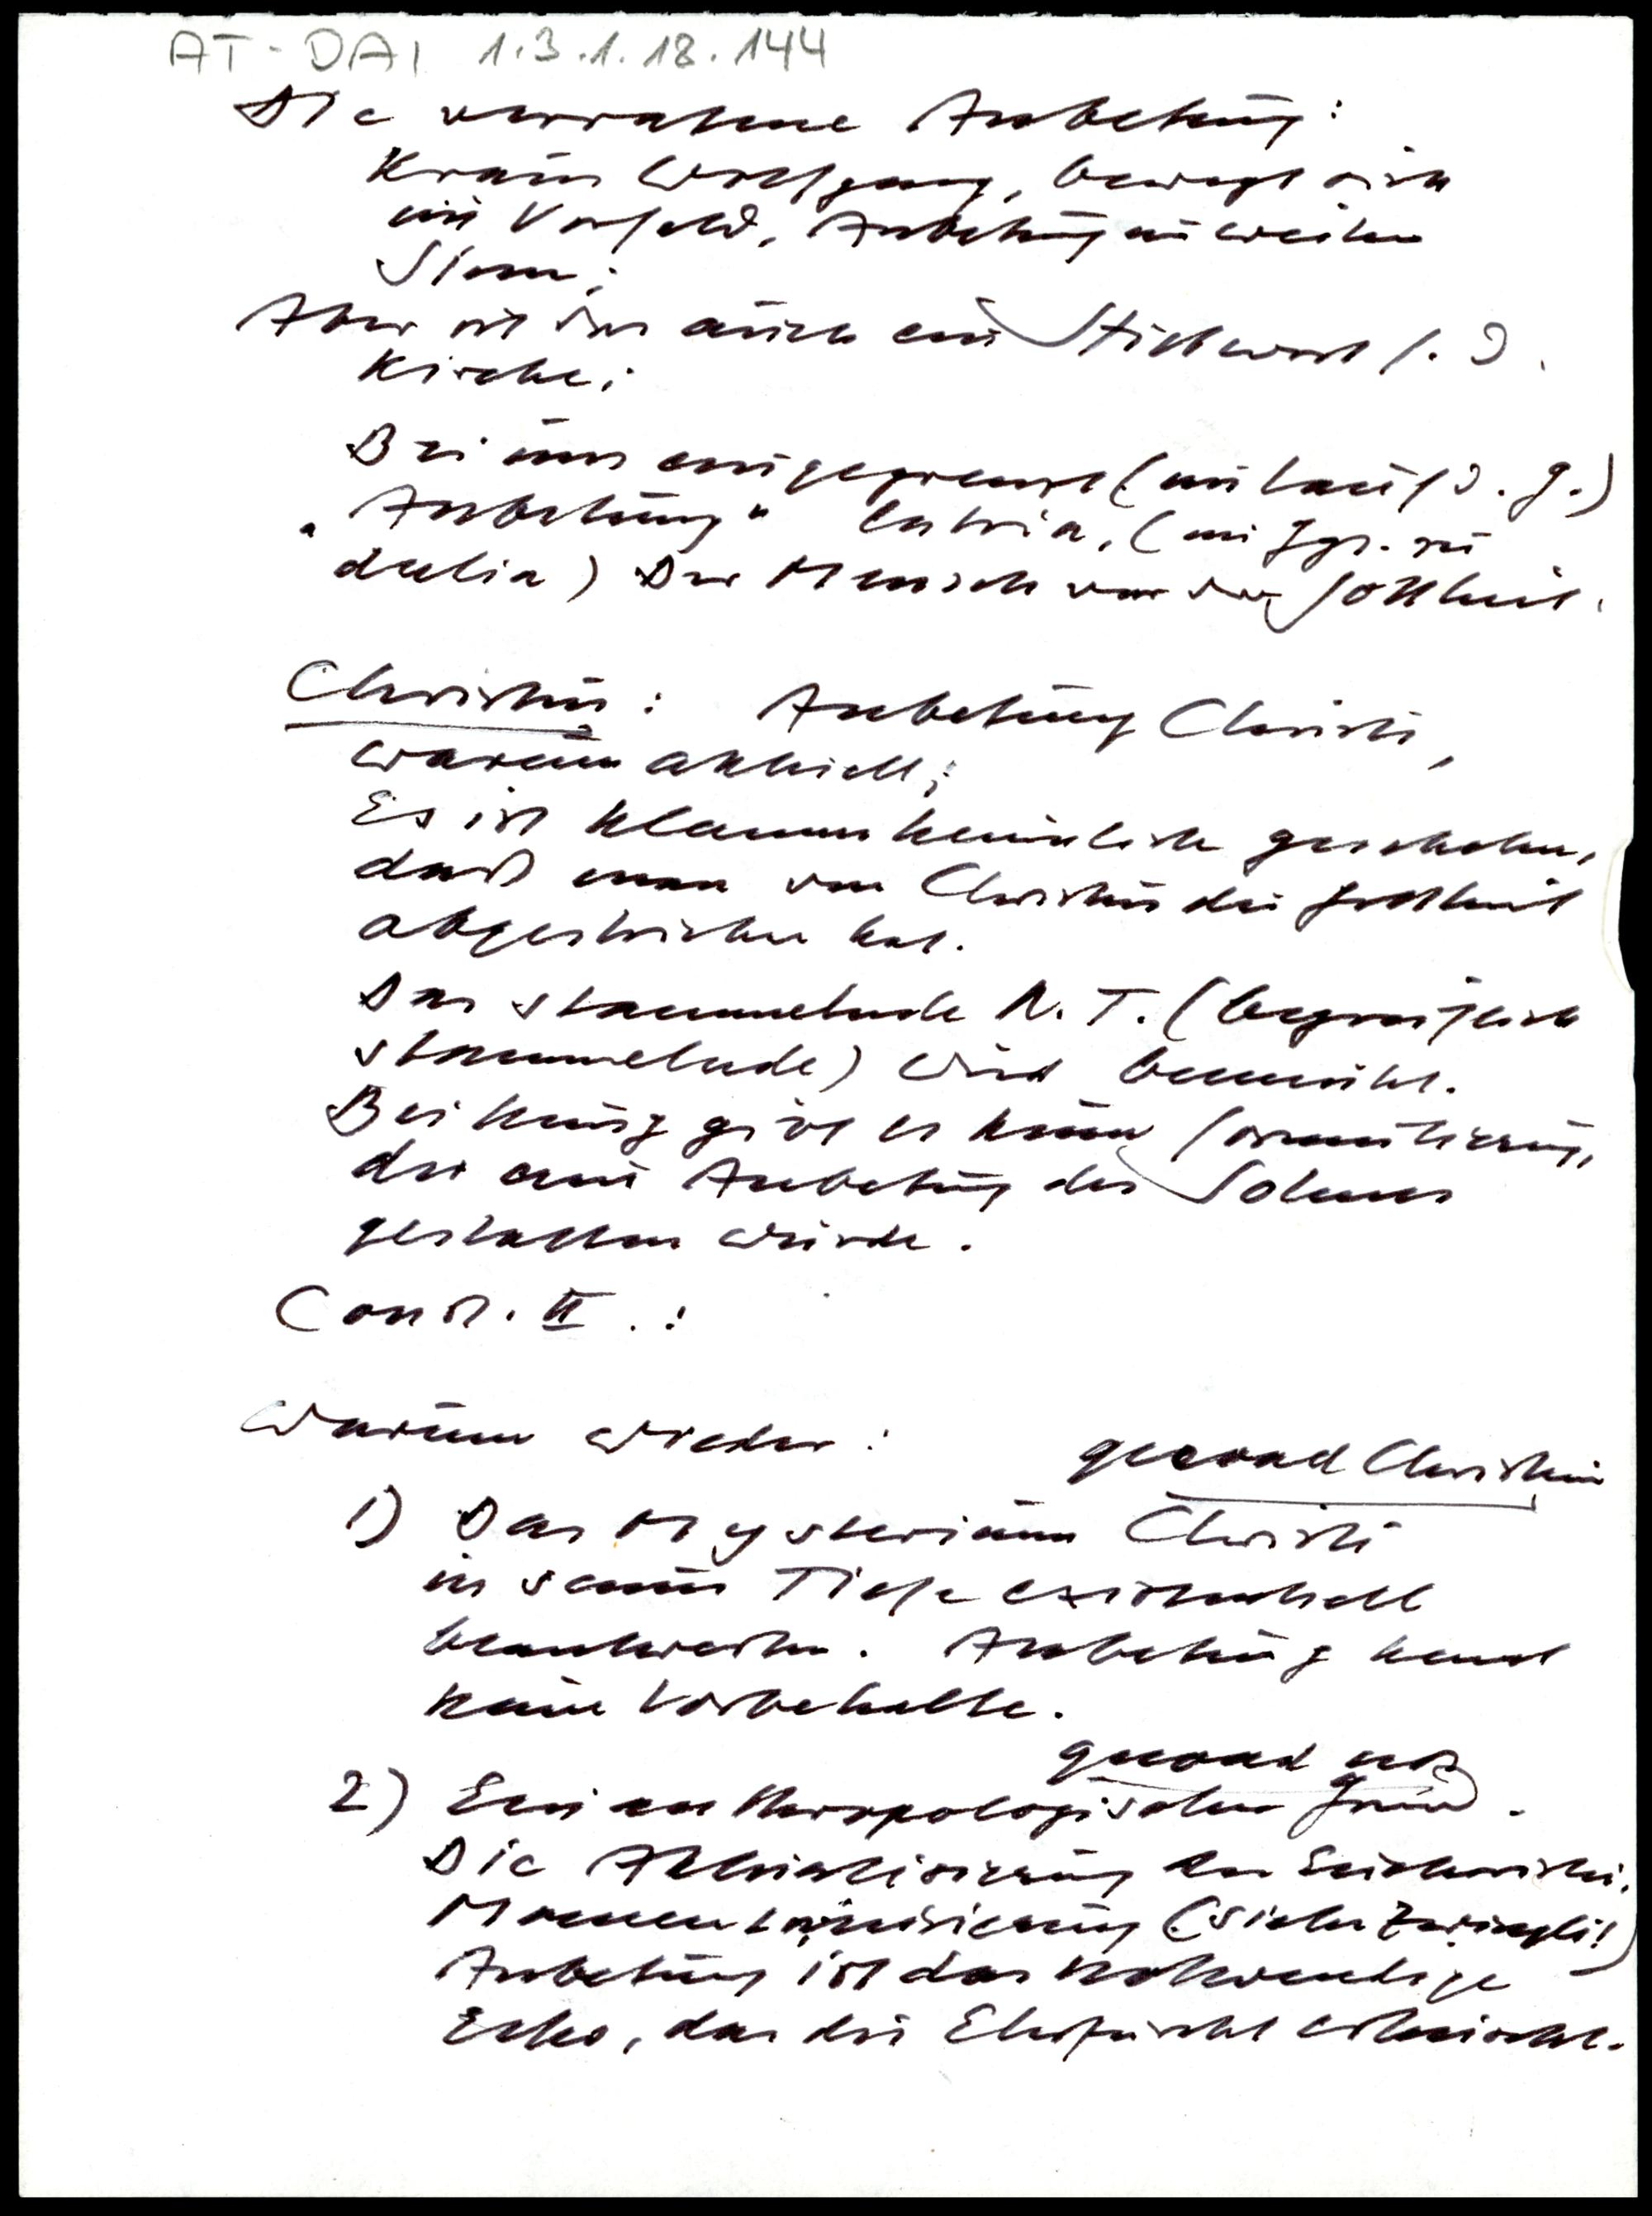 AT-DAI 1.3.1.18.144
Die Anbetung:
Kraus Wolfgang, bewegt sich
im Vorfeld, Anbetung im weiten
Sinn;
Aber ist das auch ein Stichwort f. d.
Kirche;
Bei uns eingegrenzt (im Lauf d. G.)
"Anbetung" latria, (im Ggs. zu
dulia) Der Mensch vor der Gottheit.
Christus: Anbetung Christi,
warum aktuell;
Es ist klammheimlich geschehen,
daß man von Christus die Gottheit
abgestrichen hat.
Das stammelnde N.T. (begreiflich
stammelnde) wird bemüht.
Bei Küng gibt es keine Formulierung,
die eine Anbetung des Sohnes
gestatten würde.
Const. II.:
Warum wieder:
quoad Christum
1) Das Mysterium Christi
in seiner Tiefe existentiell
beantworten. Anbetung kennt
keine Vorbehalte.
quoad nos
2) Ein anthropologischer Grund.
Die Aktualisierung der Eucharistie.
(siehe Zwingli!)
Anbetung ist das notwendige
Echo, das die Ehrfurcht erheischt.